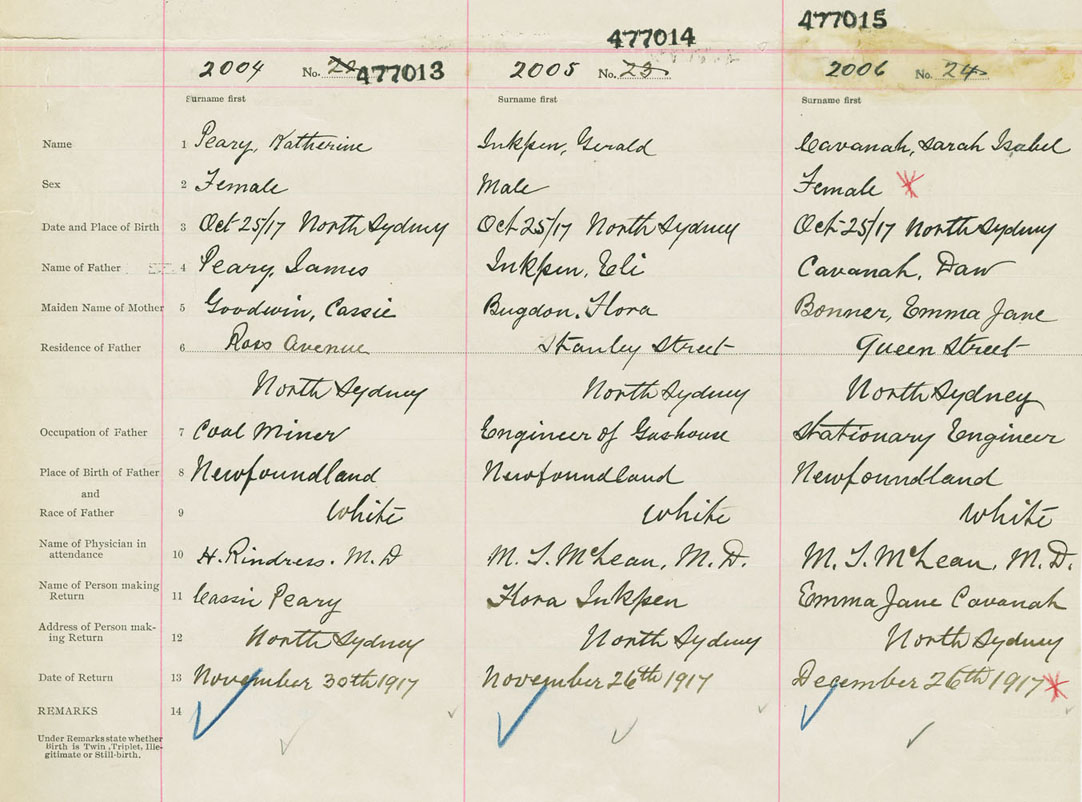 477015
477014
2004 No. 22 477013 2005 No. 23 2006 No. 24
Surname first Surname first Surname first
Name 1 Peary, Katherine Inkpen, Gerald Cavanah, Sarah Isabel
Sex 2 Female Male Female
Date and Place of Birth 3 Oct 25/17 North Sydney Oct 25/17 North Sydney Oct 25/17 North Sydney
Name of Father 4 Peary, James Inkpen, Eli Cavanah, Daw
Maiden Name of Mother 5 Goodwin, Cassie Bugdon, Flora Bonner, Emma Jane
Residence of Father 6 Ross Avenue Stanley Street Queen Street
North Sydney North Sydney North Sydney
Occupation of Father 7 Coal Miner Engineer of Gashouse Stationary Engineer
Place of Birth of Father 8 Newfoundland Newfoundland Newfoundland
and
Race of Father 9 White White White
Name of Physician in
attendance 10 H. Rindress. M.D M. T. McLean, M.D. M. T. McLean, M.D.
Name of Person making
Return 11 Cassie Peary Flora Inkpen Emma Jane Cavanah
Address of Person mak-
ing Return 12 North Sydney North Sydney North Sydney
Date of Return 13 November 30th 1917 November 26th 1917 December 26th 1917
REMARKS 14
Under Remarks state whether
Birth is Twin, Triplet, Ille-
gitimate or Still-birth.